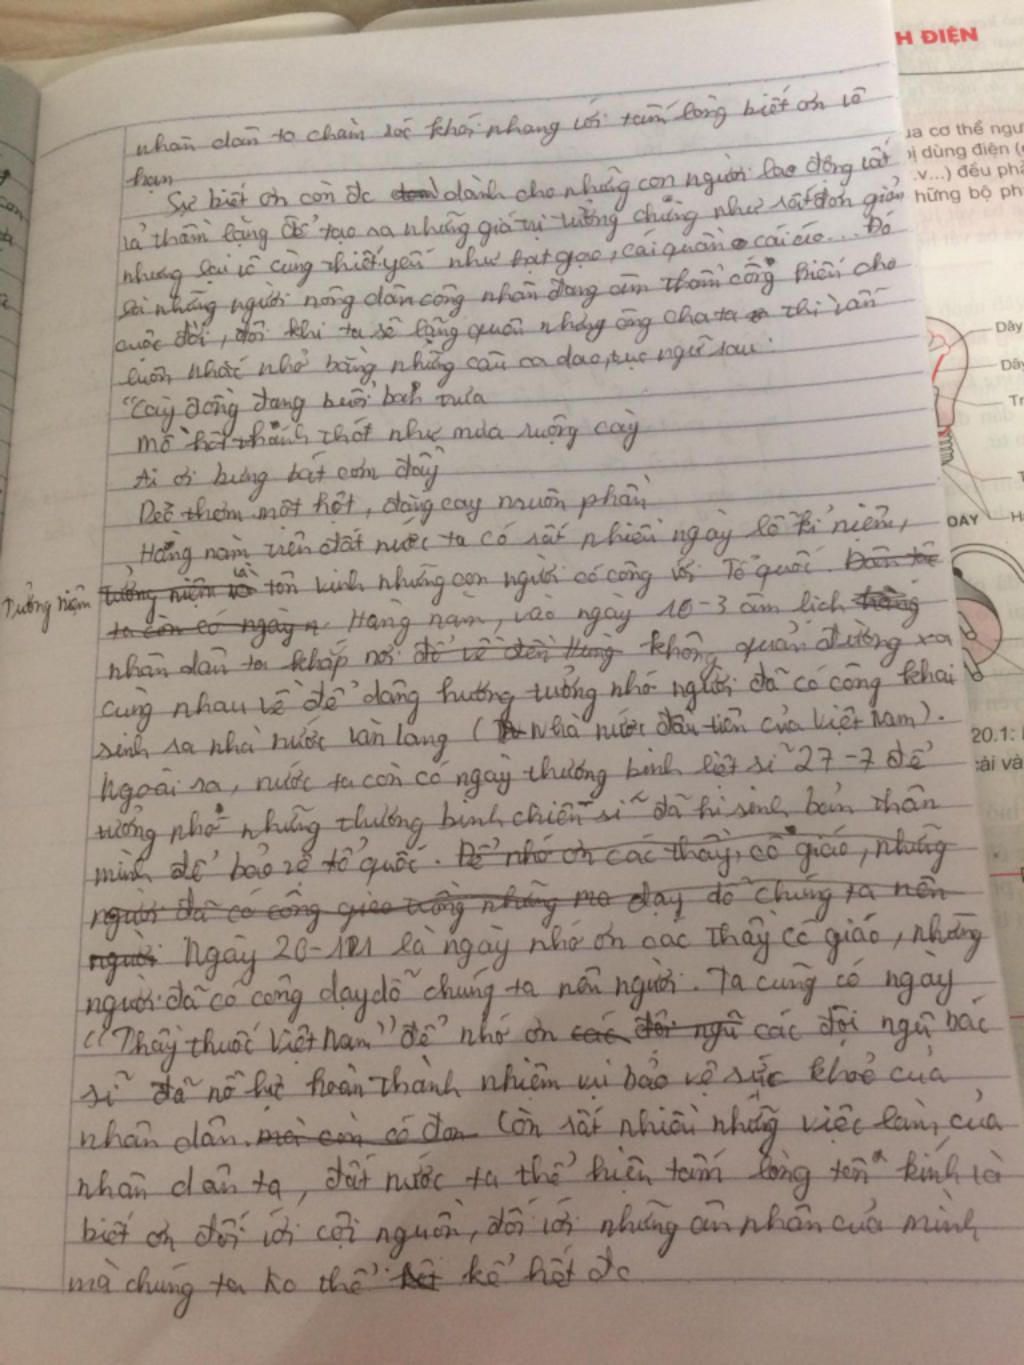 H ĐIỆN
nhân dân ta chăm sóc khói nhang với tấm lòng biết ơn vô
hạn
Sự biết ơn còn đc dành cho những con người lao động vất
vả thầm lặng để tạo ra những giá trị tưởng chừng như rất đơn giản
nhưng lại vô cùng thiết yếu như hạt gạo, cái quần cái áo... Đó
là những người nông dân công nhân đang âm thầm cống hiến cho
cuộc đời, đôi khi ta sẽ lãng quên nhưng ông cha ta thì vẫn
luôn nhắc nhở bằng những câu ca dao, tục ngữ sau:
"Cày đồng đang buổi ban trưa
mồ hôi thánh thót như mưa ruộng cày
Ai ơi bưng bát cơm đầy
Dẻo thơm một hột, đắng cay muôn phần
Hằng năm trên đất nước ta có rất nhiều ngày lễ kỉ niệm,
Tưởng niệm tưởng niệm và tôn vinh những con người có công với Tổ quốc. Dân tộc
ta còn có ngày Hàng năm, vào ngày 10-3 âm lịch hàng
nhân dân ta khắp nơi đổ về đền Hùng không quản đường xa
cùng nhau về để dâng hương tưởng nhớ người đã có công khai
sinh ra nhà nước Văn Lang (Nhà nước đầu tiên của Việt Nam).
Ngoài ra, nước ta còn có ngày thương binh liệt sĩ 27-7 để
tưởng nhớ những thương binh chiến sĩ đã hi sinh bản thân
mình để bảo vệ tổ quốc. Để nhớ ơn các thầy, cô giáo, những
người đã có công dạy dỗ chúng ta nên
người Ngày 20-11 là ngày nhớ ơn các thầy cô giáo, những
người đã có công dạy dỗ chúng ta nên người. Ta cũng có ngày
"Thầy thuốc Việt Nam" để nhớ ơn các đội ngũ các đội ngũ bác
sĩ đã nỗ lực hoàn thành nhiệm vụ bảo vệ sức khoẻ của
nhân dân. mà còn có Còn rất nhiều những việc làm của
nhân dân ta, đất nước ta thể hiện tấm lòng tôn kính và
biết ơn đối với cội nguồn, đối với những ân nhân của mình
mà chúng ta ko thể kể hết đc
ua cơ thể ngư
bị dùng điện (
.v...) đều ph
hững bộ ph
Dây
DAY
20.1:
cải và